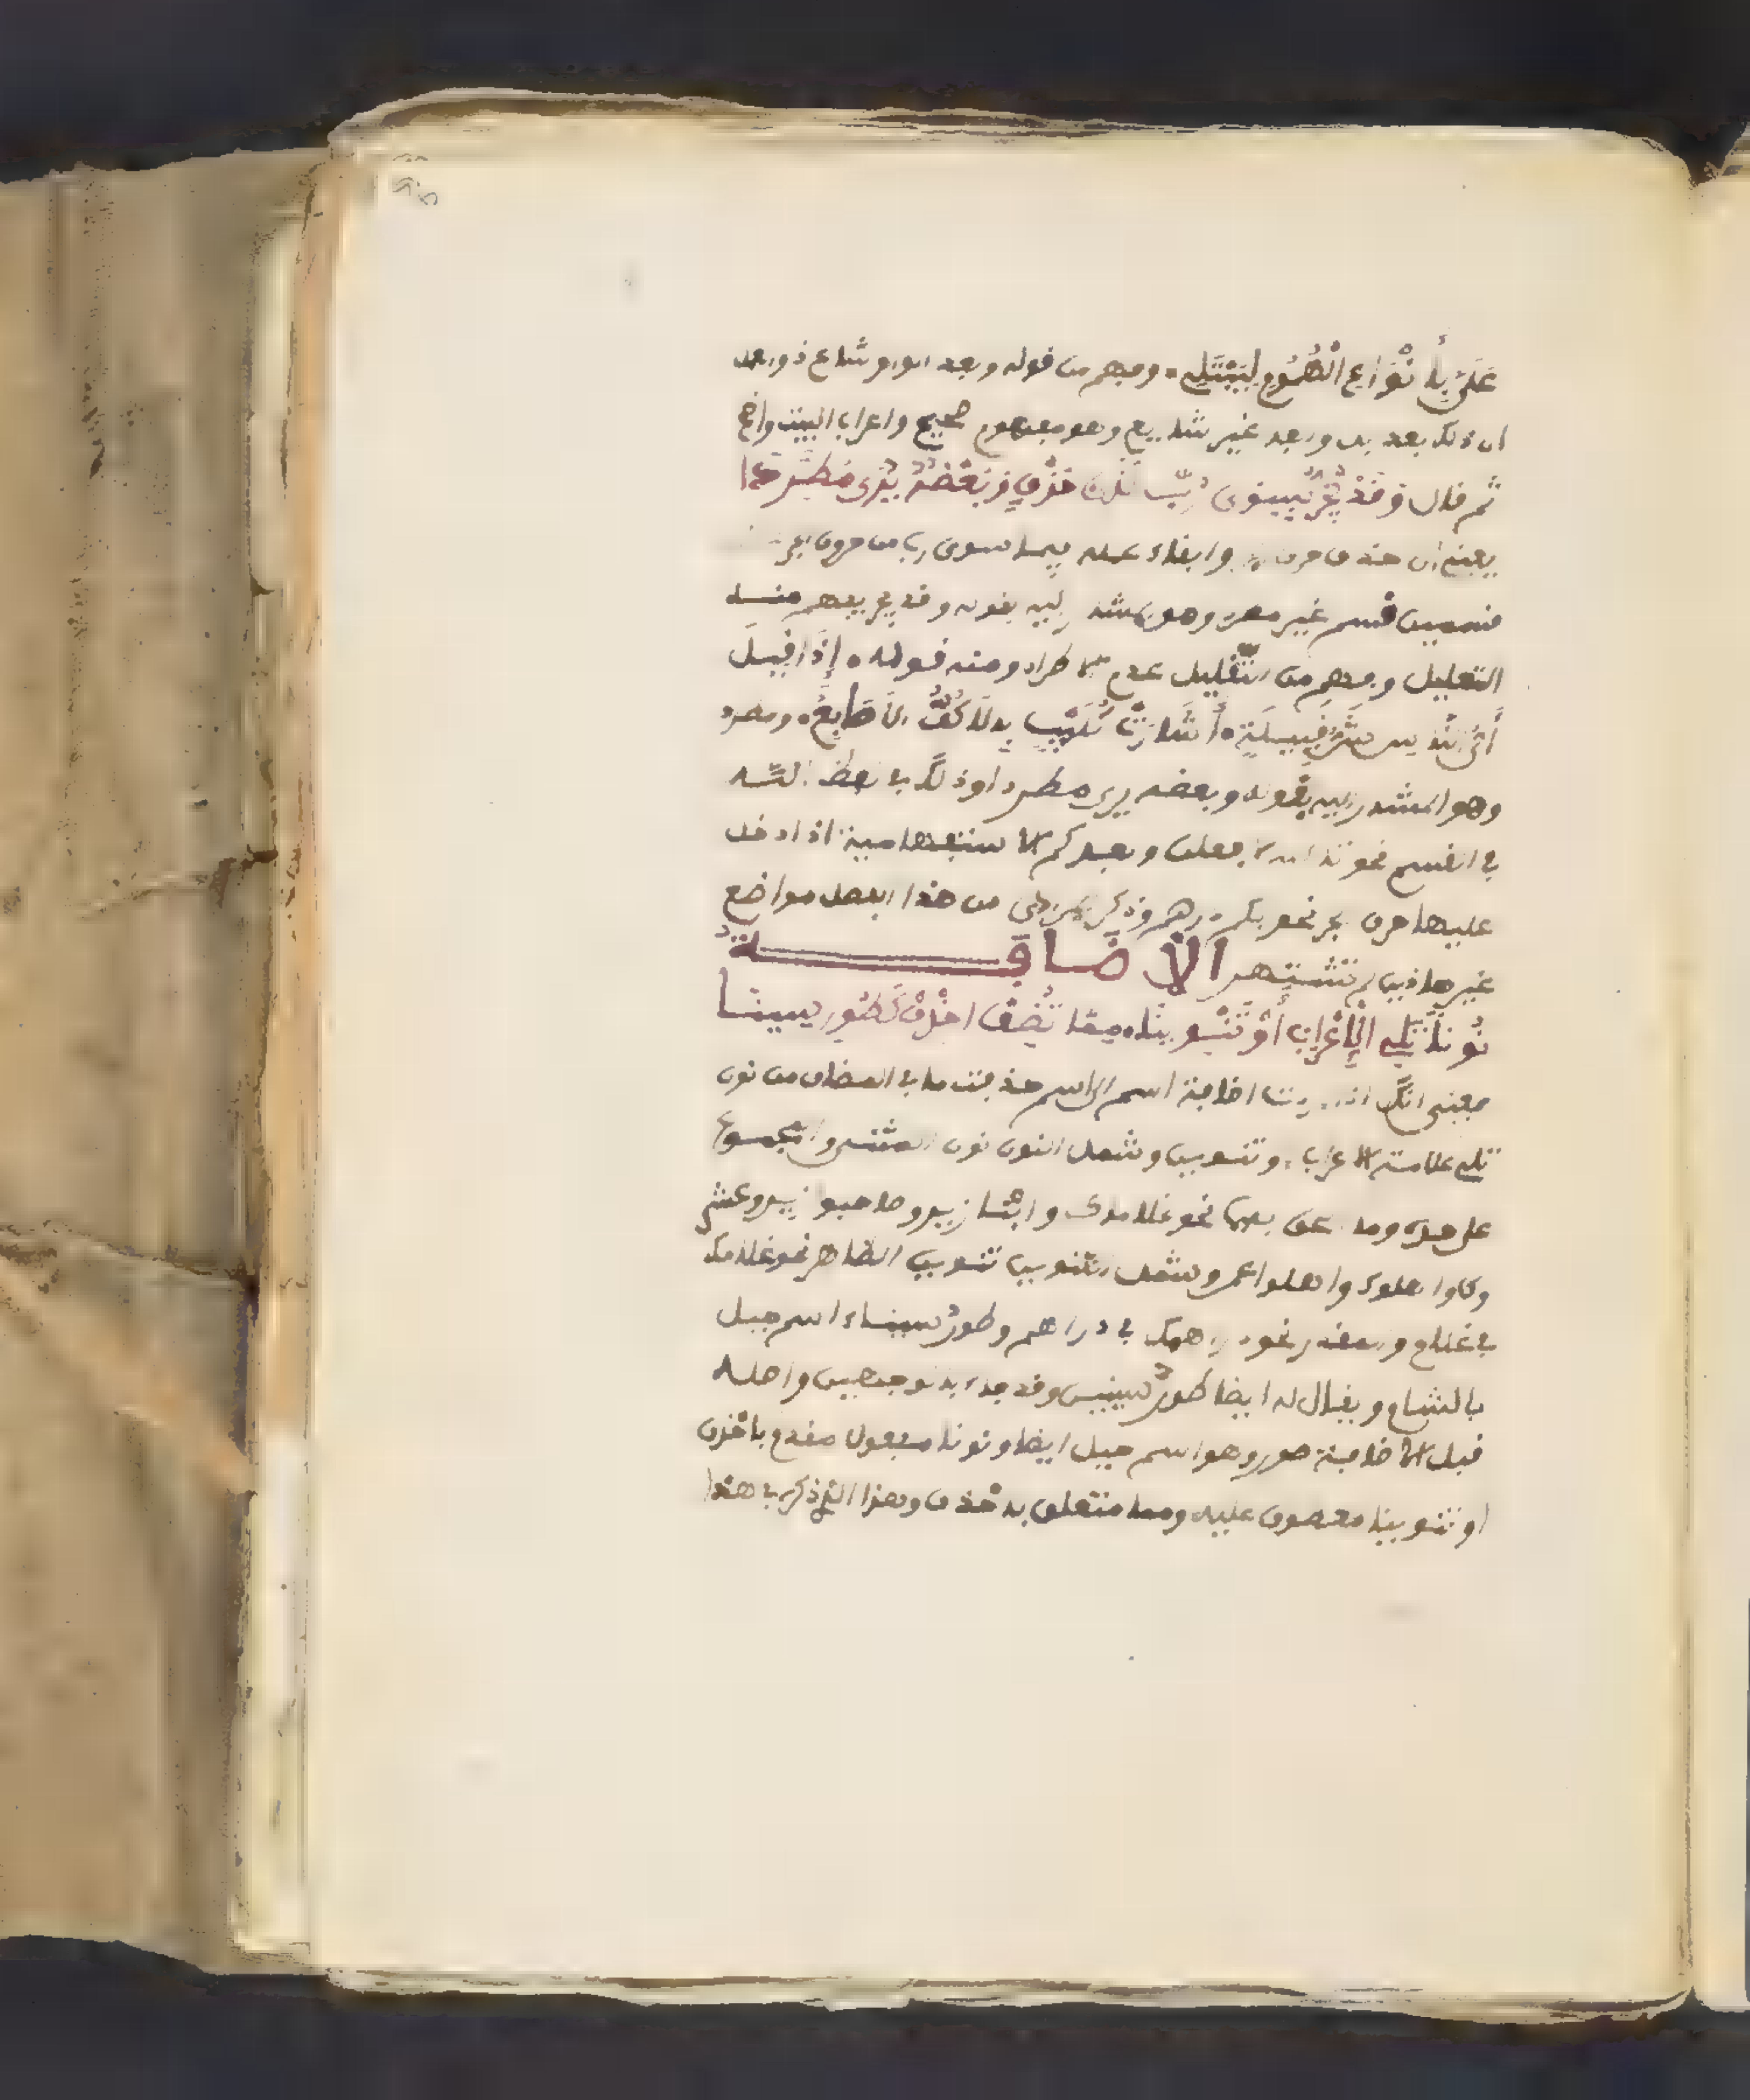 عَلَيَّ بِأَنْوَاعِ الْهُمُومِ لِيَبْتَلِي۰ وفهم من قوله وبعد الواو شاع ذو العمل
ان ذلك بعد بل وبعد غير شايع وهو مفهوم صحيح واعراب البيت واضح
ثم قال وَقَدْ يُجَرُّ بِسِوَى رُبَّ لَدَى حَذْفٍ وَبَعْضُهُ يُرَى مُطَّرِدَا
يعني ان حذف حرف وابقاء عمله فيما سوى رب من حروف الجر
قسمين قسم غير مطرد وهو المشار اليه بقوله وقد يجر يفهم منه
التقليل وفهم من التّقليل عدم الاطراد ومنه قوله ۰ إِذَا قِيلَ
أَيُّ النَّاسِ شَرُّ قَبِيلَةٍ ۰ أَشَارَتْ كُلَيْبٍ بِالأَكُفِّ الأَصَابِعُ ۰ ومطرد
وهو المشار اليه بقوله وبعضه يرى مطردا وذلك في لفظ الله
في القسم نحو الله لافعلن وبعد كم الاستفهامية اذا دخل
عليها حرف جر نحو بكم درهم وذكر من هذا الفصل مواضع
غير هاذين لم تشتهر الاضافـــة
نُونًا تَلِي الإِعْرَابَ أَوْ تَنْوِينَا ۰ مِمَّا تُضِفْ احْذِفْ كَطُورِ سِينَا
يعني انك اذا اردت اضافة اسم الى اسم حذفت ما في المضاف من نون
تلي علامة الاعراب او تنوين وشمل النون نون المثنى والمجموع
على حده وما الحق بهما نحو غلاماك واثنا زيد وصاحبو زيد وعشرو
واهلوك واهلوا عمرو شمل التنوين تنوين الظاهر نحو غلامك
في غلام والمقدر نحو دراهمك في دراهم وطور سيناء اسم جبل
بالشام ويقال له ايضا طور سينين وقد جاء بالوجهين واصله
قبل الاضافة طور وهو اسم جبل ايضا ونونا مفعول مقدم باحذف
او تنوينا معطوف عليه ومما متعلق باحذف وهذا الذي ذكر في هذا